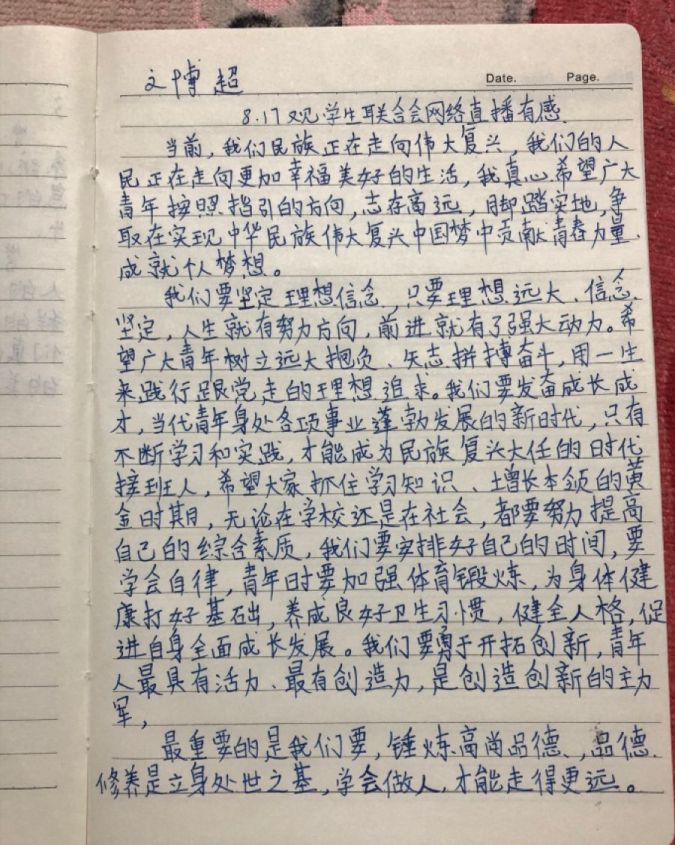 文博超
Date. Page.
8.17观学生联合会网络直播有感
当前,我们民族正在走向伟大复兴,我们的人
民正在走向更加幸福美好的生活,我真心希望广大
青年按照指引的方向,志存高远,脚踏实地,争
取在实现中华民族伟大复兴中国梦中贡献青春力量、
成就个人梦想。
我们要坚定理想信念,只要理想远大、信念
坚定,人生就有努力方向,前进就有了强大动力。希
望广大青年树立远大抱负、矢志拼搏奋斗,用一生
来践行跟党走的理想追求。我们要发奋成长成
才,当代青年身处各项事业蓬勃发展的新时代,只有
不断学习和实践,才能成为民族复兴大任的时代
接班人,希望大家抓住学习知识、增长本领的黄
金时期,无论在学校还是在社会,都要努力提高
自己的综合素质,我们要安排好自己的时间,要
学会自律,青年时要加强体育锻炼,为身体健
康打好基础,养成良好卫生习惯,健全人格,促
进自身全面成长发展。我们要勇于开拓创新,青年
人最具有活力、最有创造力,是创造创新的主力
军,
最重要的是我们要,锤炼高尚品德、,品德
修养是立身处世之基,学会做人,才能走得更远。